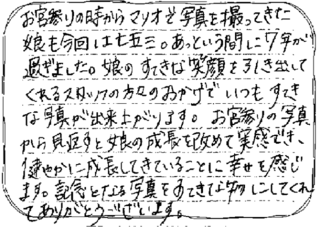 お宮参りの時からマリオで写真を撮ってきた
娘も今回は七五三。あっという間に7年が
過ぎました。娘のすてきな笑顔を引き出して
くれるスタッフの方々のおかげで いつもすてき
な写真が出来上がります。 お宮参りの写真
から見返すと娘の成長を改めて実感でき、
健やかに成長してきていることに幸せを感じ
ます。記念となる写真をすてきな物にしてくれ
てありがとうございます。